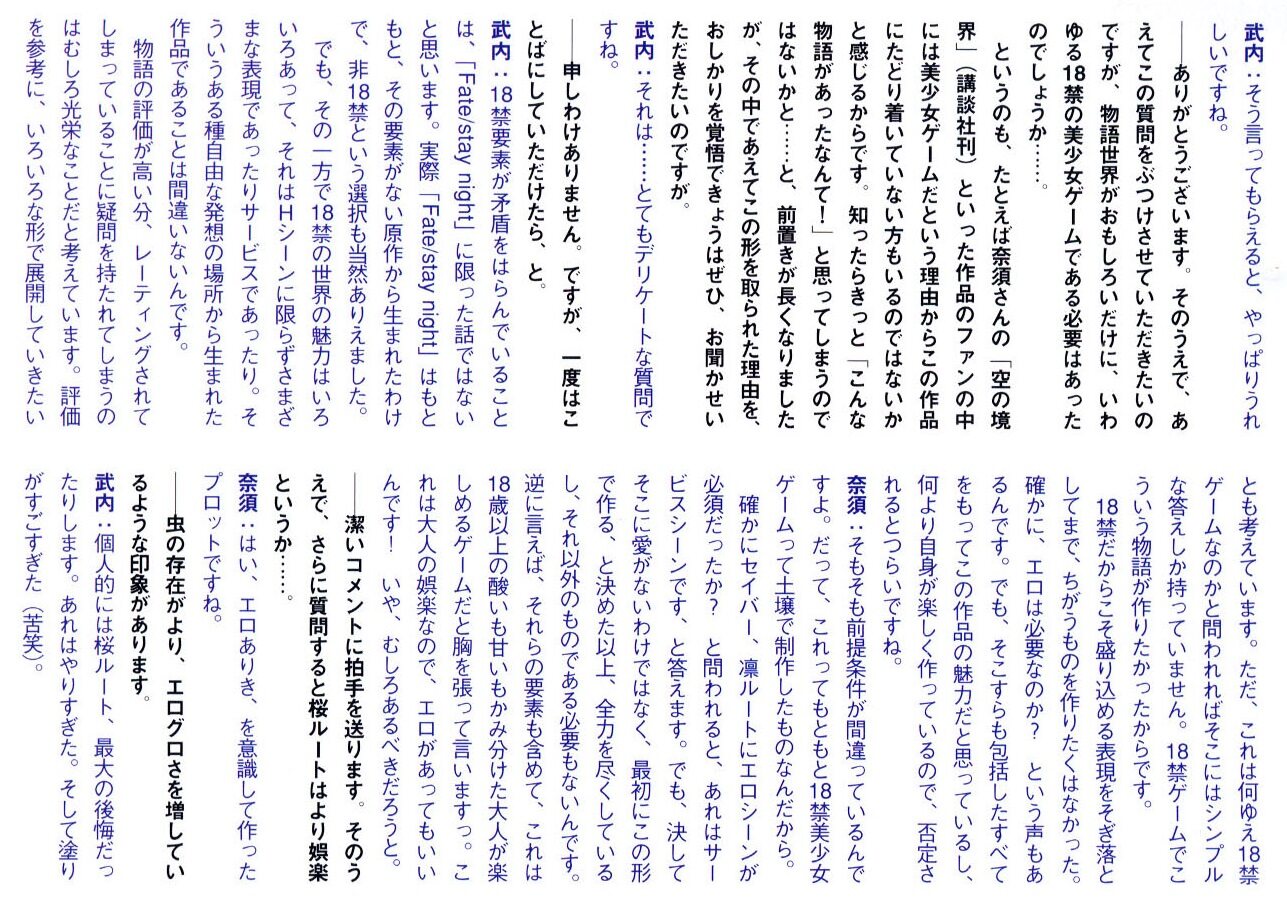 武内：そう言ってもらえると、やっぱりうれ
しいですね。
――ありがとうございます。そのうえで、あ
えてこの質問をぶつけさせていただきたいの
ですが、物語世界がおもしろいだけに、いわ
ゆる18禁の美少女ゲームである必要はあった
のでしょうか……。
　というのも、たとえば奈須さんの「空の境
界」（講談社刊）といった作品のファンの中
には美少女ゲームだという理由からこの作品
にたどり着いていない方もいるのではないか
と感じるからです。知ったらきっと「こんな
物語があったなんて！」と思ってしまうので
はないかと……と、前置きが長くなりました
が、その中であえてこの形を取られた理由を、
おしかりを覚悟できょうはぜひ、お聞かせい
ただきたいのですが。
武内：それは……とてもデリケートな質問で
すね。
――申しわけありません。ですが、一度はこ
とばにしていただけたら、と。
武内：18禁要素が矛盾をはらんでいること
は、「Fate/stay night」に限った話ではない
と思います。実際「Fate/stay night」はもと
もと、その要素がない原作から生まれたわけ
で、非18禁という選択も当然ありえました。
　でも、その一方で18禁の世界の魅力はいろ
いろあって、それはHシーンに限らずさまざ
まな表現であったりサービスであったり。そ
ういうある種自由な発想の場所から生まれた
作品であることは間違いないんです。
　物語の評価が高い分、レーティングされて
しまっていることに疑問を持たれてしまうの
はむしろ光栄なことだと考えています。評価
を参考に、いろいろな形で展開していきたい
とも考えています。ただ、これは何ゆえ18禁
ゲームなのかと問われればそこにはシンプル
な答えしか持っていません。18禁ゲームでこ
ういう物語が作りたかったからです。
　18禁だからこそ盛り込める表現をそぎ落と
してまで、ちがうものを作りたくはなかった。
確かに、エロは必要なのか？　という声もあ
るんです。でも、そこすらも包括したすべて
をもってこの作品の魅力だと思っているし、
何より自身が楽しく作っているので、否定さ
れるとつらいですね。
奈須：そもそも前提条件が間違っているんで
すよ。だって、これってもともと18禁美少女
ゲームって土壌で制作したものなんだから。
　確かにセイバー、凛ルートにエロシーンが
必須だったか？　と問われると、あれはサー
ビスシーンです、と答えます。でも、決して
そこに愛がないわけではなく、最初にこの形
で作る、と決めた以上、全力を尽くしている
し、それ以外のものである必要もないんです。
逆に言えば、それらの要素も含めて、これは
18歳以上の酸いも甘いもかみ分けた大人が楽
しめるゲームだと胸を張って言いますっ。こ
れは大人の娯楽なので、エロがあってもいい
んです！　いや、むしろあるべきだろうと。
――潔いコメントに拍手を送ります。そのう
えで、さらに質問すると桜ルートはより娯楽
というか……。
奈須：はい、エロありき、を意識して作った
プロットですね。
――虫の存在がより、エログロさを増してい
るような印象があります。
武内：個人的には桜ルート、最大の後悔だっ
たりします。あれはやりすぎた。そして塗り
がすごすぎた（苦笑）。